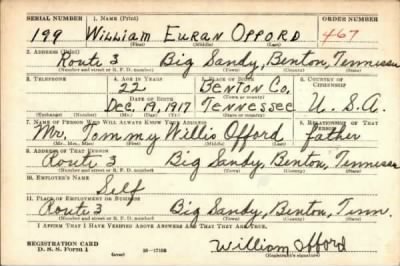 SERIAL NUMBER 1. NAME (Print) ORDER NUMBER
199 William Euran Offord 467
(First) (Middle) (Last)
2. ADDRESS (Print)
Route 3 Big Sandy, Benton, Tennessee
(Number and street or R. F. D. number) (Town) (County) (State)
3. TELEPHONE 4. AGE IN YEARS 5. PLACE OF BIRTH 6. COUNTRY OF CITIZENSHIP
22 Benton Co.
DATE OF BIRTH (Town or county)
Dec, 19, 1917 Tennessee U. S. A.
(Exchange) (Number) (Mo.) (Day) (Yr.) (State or country)
7. NAME OF PERSON WHO WILL ALWAYS KNOW YOUR ADDRESS 8. RELATIONSHIP OF THAT PERSON
Mr, Tommy Willis Offord father
(Mr., Mrs., Miss) (First) (Middle) (Last)
9. ADDRESS OF THAT PERSON
Route 3 Big Sandy, Benton, Tennessee
(Number and street or R. F. D. number) (Town) (County) (State)
10. EMPLOYER'S NAME
Self
11. PLACE OF EMPLOYMENT OR BUSINESS
Route 3 Big Sandy, Benton, Tenn.
(Number and street or R. F. D. number) (Town) (County) (State)
I AFFIRM THAT I HAVE VERIFIED ABOVE ANSWERS AND THAT THEY ARE TRUE.
REGISTRATION CARD
D. S. S. Form 1 (over) William Offord
(Registrant's signature)